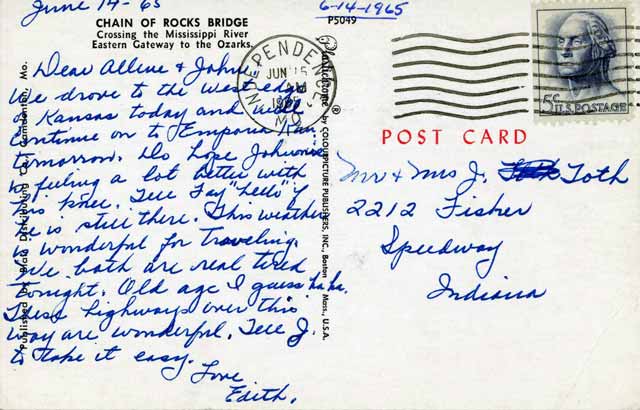 June 14-65
6-14-1965
CHAIN OF ROCKS BRIDGE
Crossing the Mississippi River
Eastern Gateway to the Ozarks.
P5049
INDEPENDENCE
JUN 15
1965
MO.
5¢ U.S. POSTAGE
POST CARD
Dear Allene & John,
We drove to the west edge
of Kansas today and will
continue on to Emporia Kan
tomorrow. Do hope Johnnie
is feeling a lot better with
his knee. Tell Fay "hello" if
he is still there. This weather
is wonderful for traveling.
We both are real tired
tonight. Old age I guess ha ha.
These highways over this
way are wonderful. Tell J.
to take it easy.
Love
Edith.
Mr & Mrs J. Toth
2212 Fisher
Speedway
Indiana
Published by Blate Distributing Co., Mo.
by COLOURPICTURE PUBLISHERS, INC., Boston Mass., U.S.A.